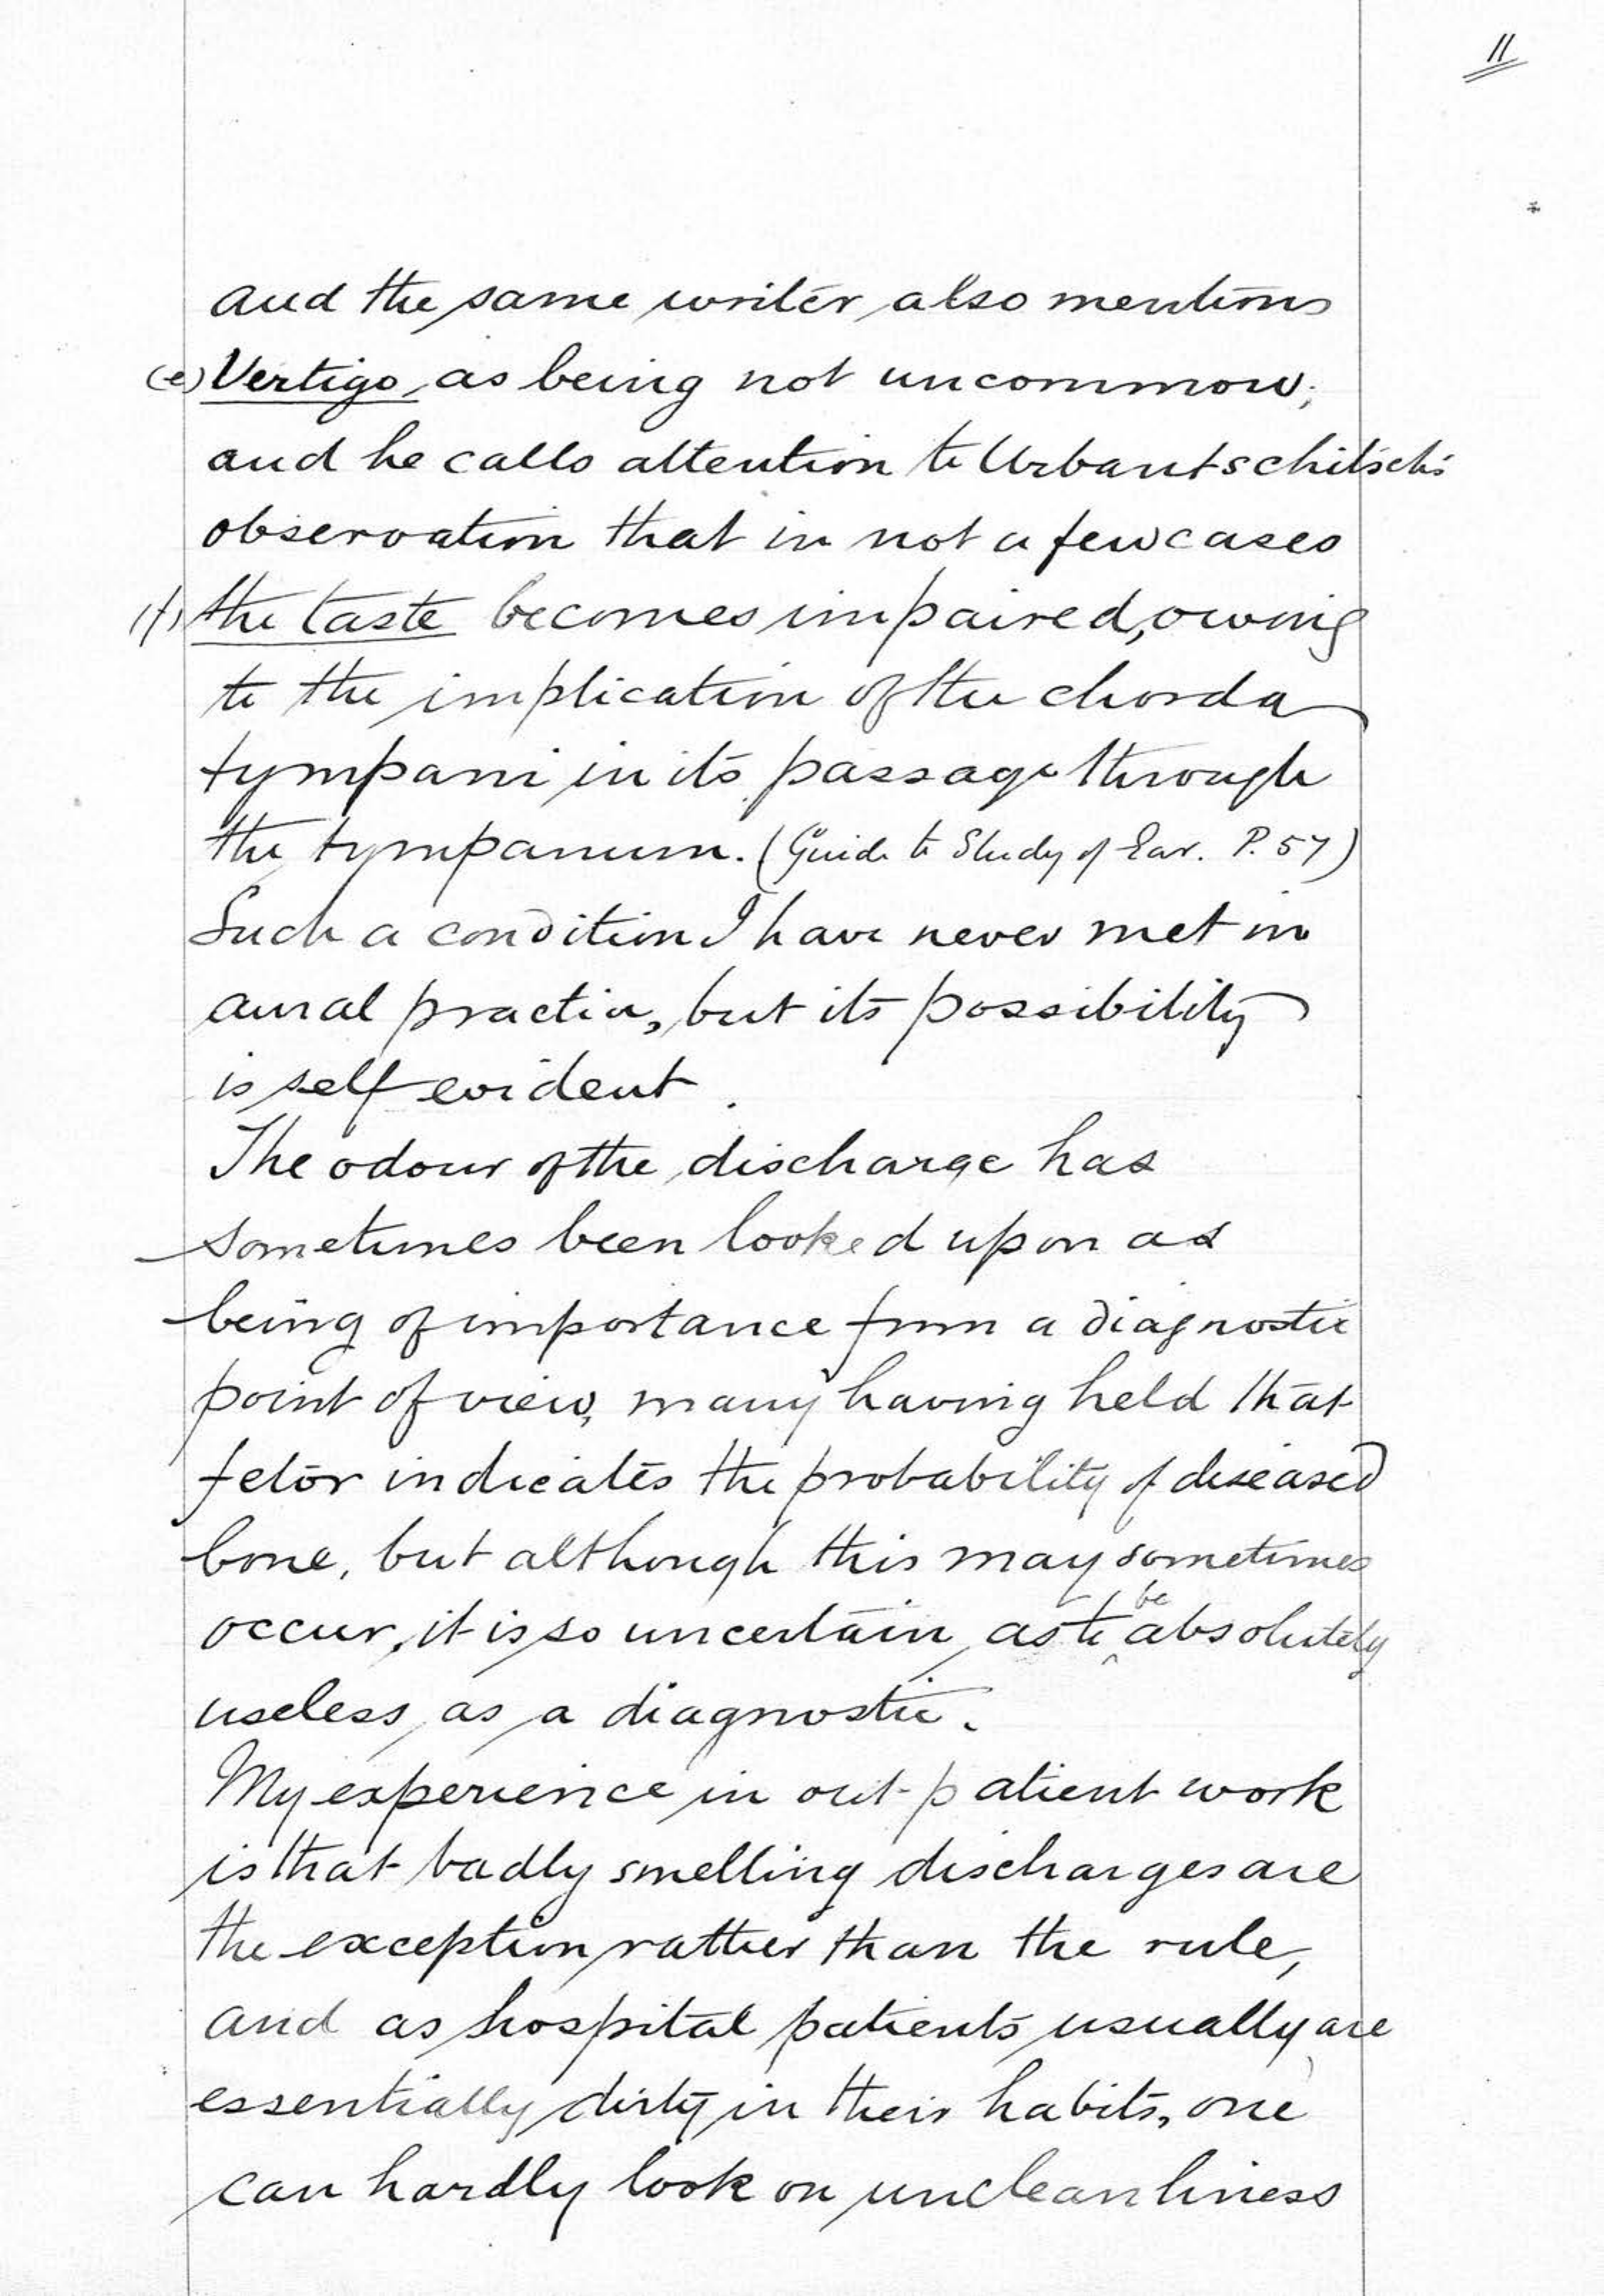 11
and the same writer also mentions
(e) Vertigo, as being not uncommon;
and he calls attention to Urbantschitsch's
observation that in not a few cases
(f) the taste becomes impaired, owing
to the implication of the chorda
tympani in its passage through
the tympanum. (Guide to Study of Ear. P. 57)
Such a condition I have never met in
aural practice, but its possibility
is self evident.
The odour of the discharge has
sometimes been looked upon as
being of importance from a diagnostic
point of view, many having held that
fetor indicates the probability of diseased
bone, but although this may sometimes
occur, it is so uncertain, as to be absolutely
useless as a diagnostic.
My experience in out-patient work
is that badly smelling discharges are
the exception rather than the rule,
and as hospital patients usually are
essentially dirty in their habits, one
can hardly look on uncleanliness